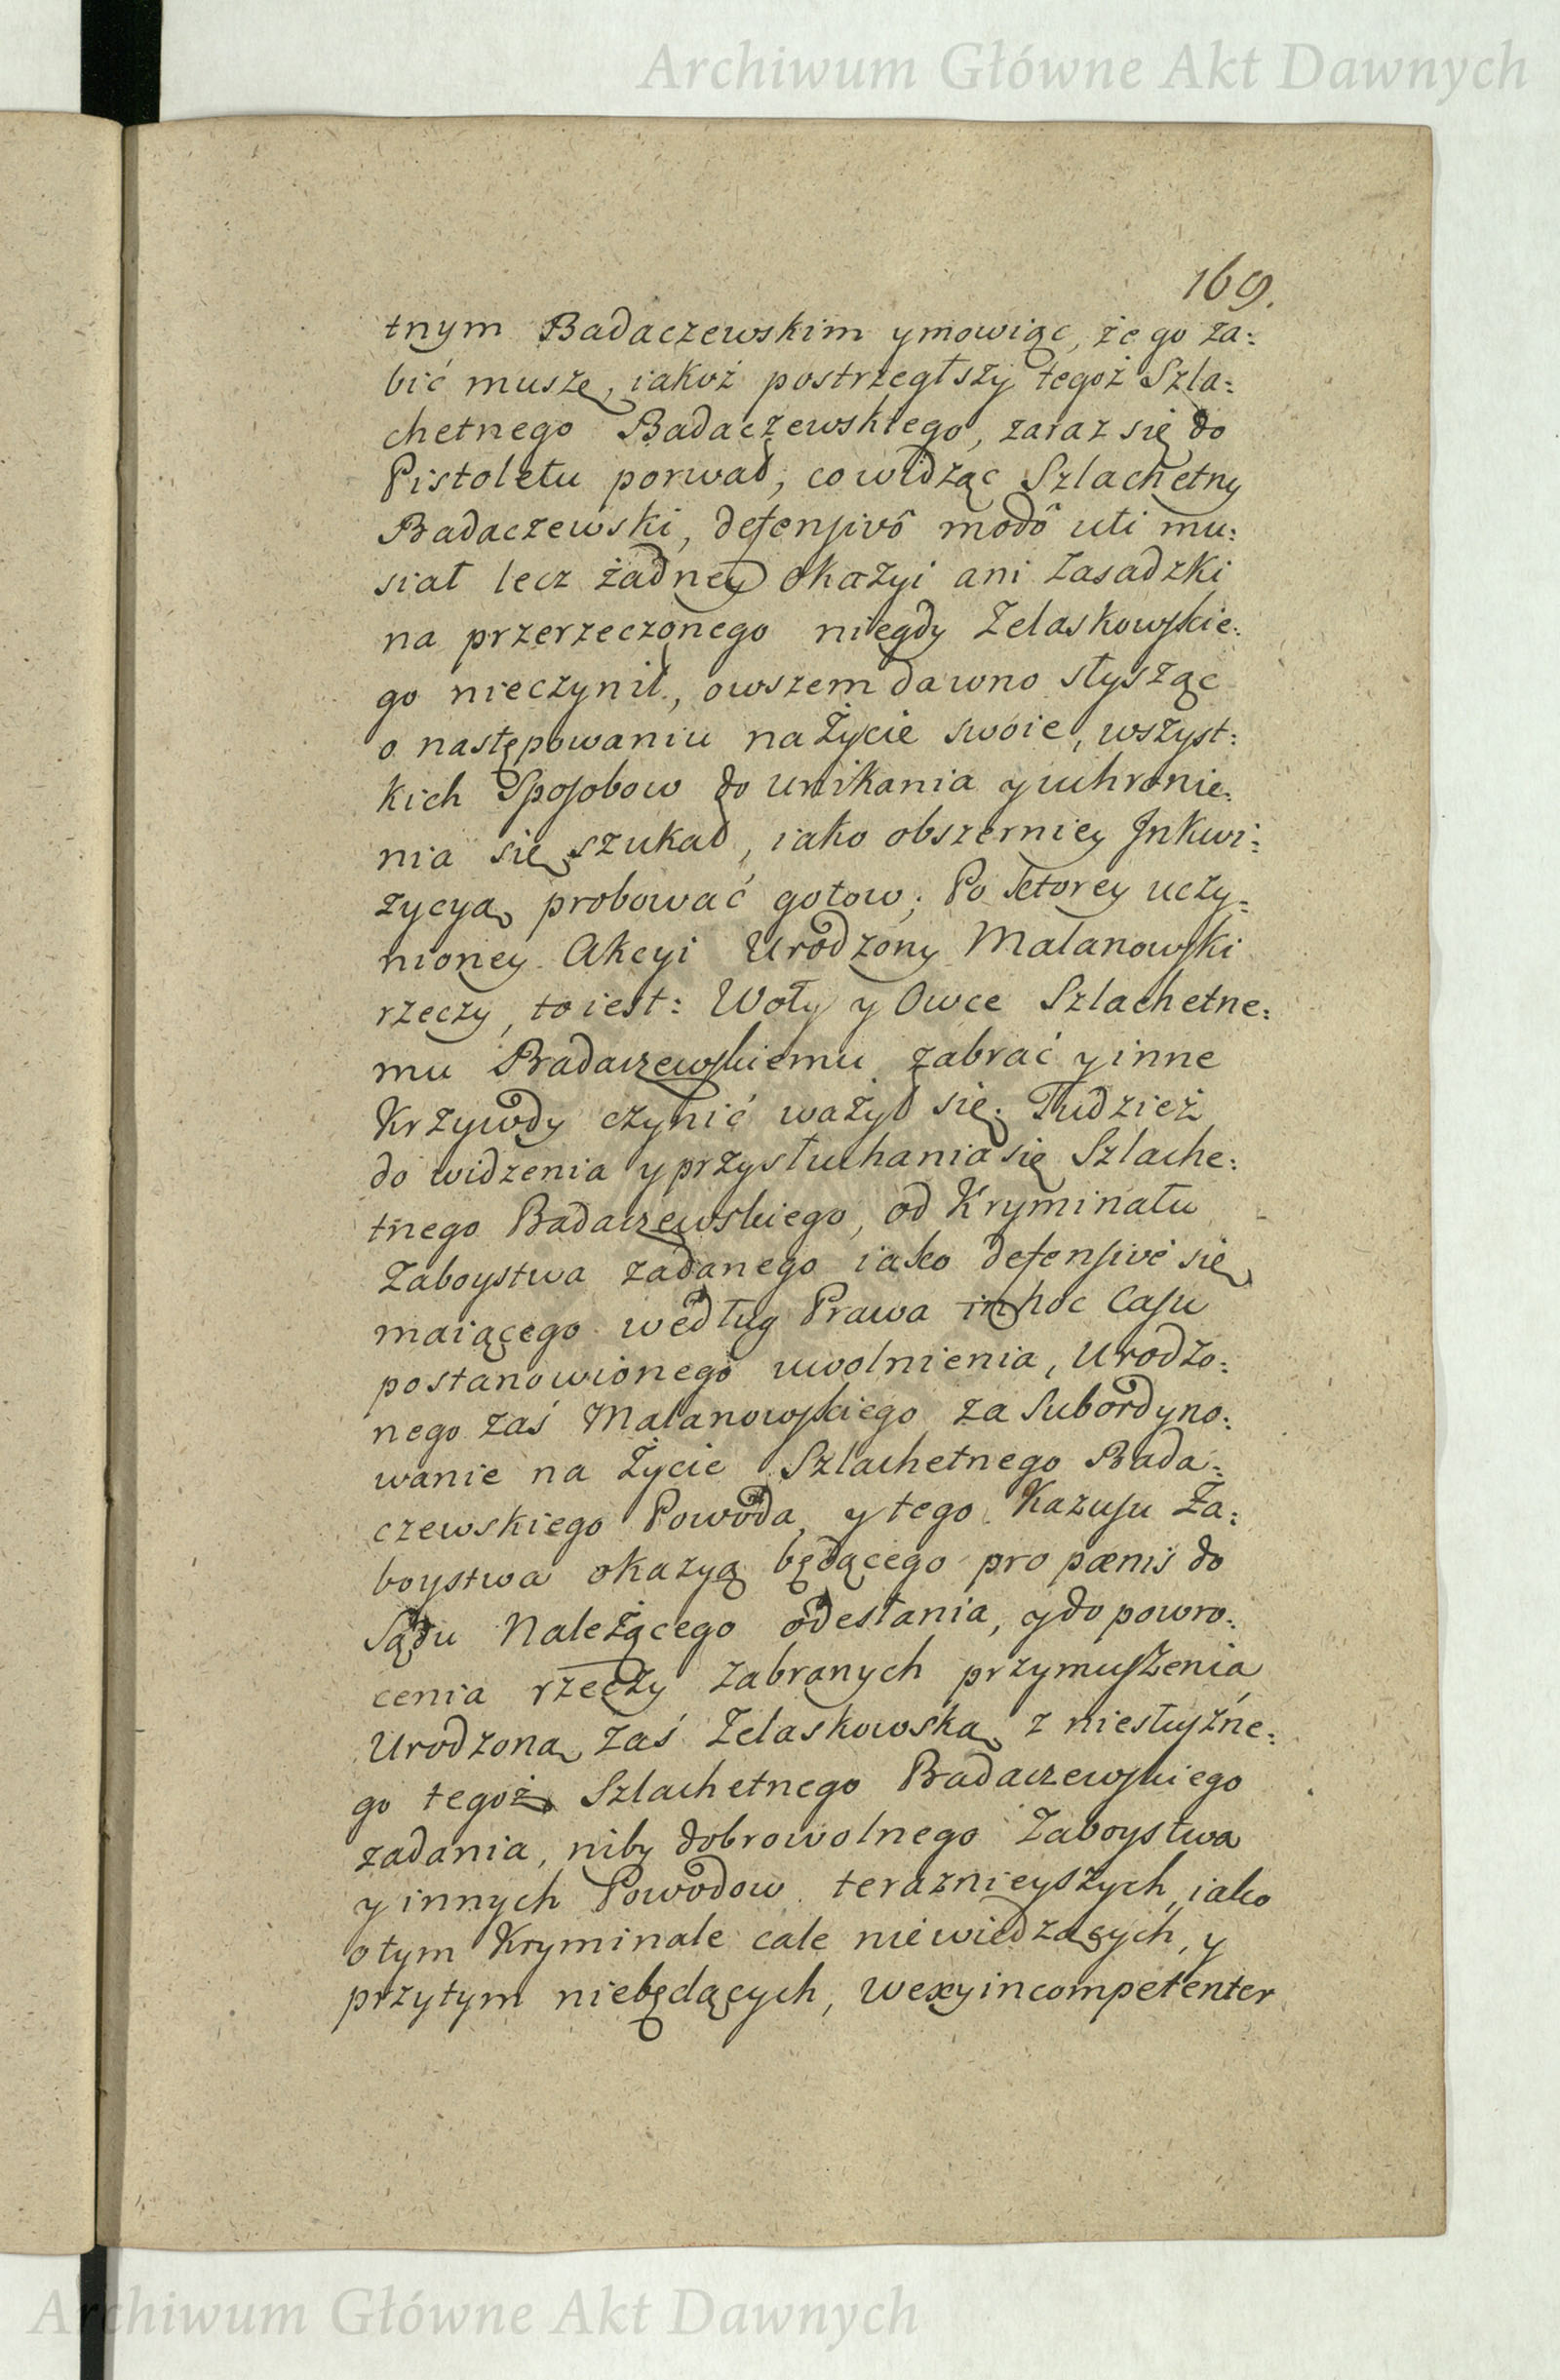 Archiwum Główne Akt Dawnych
169.
tnym Badaczewskim y mowiąc, że go za:
bić muszę, iakoż postrzegłszy tegoż Szla:
chetnego Badaczewskiego, zaraz się do
Pistoletu porwał, co widząc Szlachetny
Badaczewski, defensivô modô uti mu:
siał lecz żadney okazyi ani zasadzki
na przerzeczonego niegdy Zelaskowskie:
go nieczynił, owszem dawno słysząc
o następowaniu na Życie swoie, wszyst:
kich Sposobow do unikania y uchronie:
nia się szukał, iako obszerniey Jnkwi:
zycyą probować gotow; Po ktorey uczy:
nioney Akcyi Urodzony Małanowski
rzeczy, to iest: Woły y Owce Szlachetne:
mu Badaczewskiemu zabrać y inne
Krzywdy czynić ważył się. Tudzież
do widzenia y przysłuchania się Szlache:
tnego Badaczewskiego, od Kryminału
Zaboystwa zadanego iako defensivé się
maiącego według Prawa in hoc Casu
postanowionego uwolnienia, Urodzo:
nego zaś Małanowskiego za Subordyno:
wanie na Życie Szlachetnego Bada:
czewskiego Powoda, y tego Kazusu Za:
boystwa okazyą będącego pro pœnis do
Sądu Należącego odesłania, y do powro:
cenia rzeczy zabranych przymuszenia
Urodzoną zaś Zelaskowską z niesłuszne:
go tegoż Szlachetnego Badaczewskiego
zadania, niby dobrowolnego Zaboystwa
y innych Powodow teraznieyszych, iako
o tym Kryminale cale niewiedzących, y
przytym niebędących, wexy incompetenter
Archiwum Główne Akt Dawnych